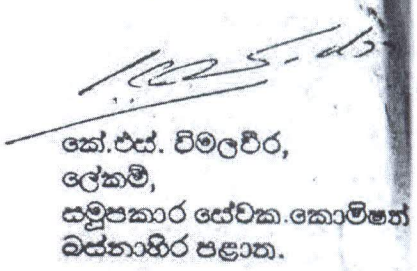 කේ.එස්. විමලවීර,
ලේකම්,
සමූපකාර සේවක.කොමිෂන්
බස්නාහිර පළාත.